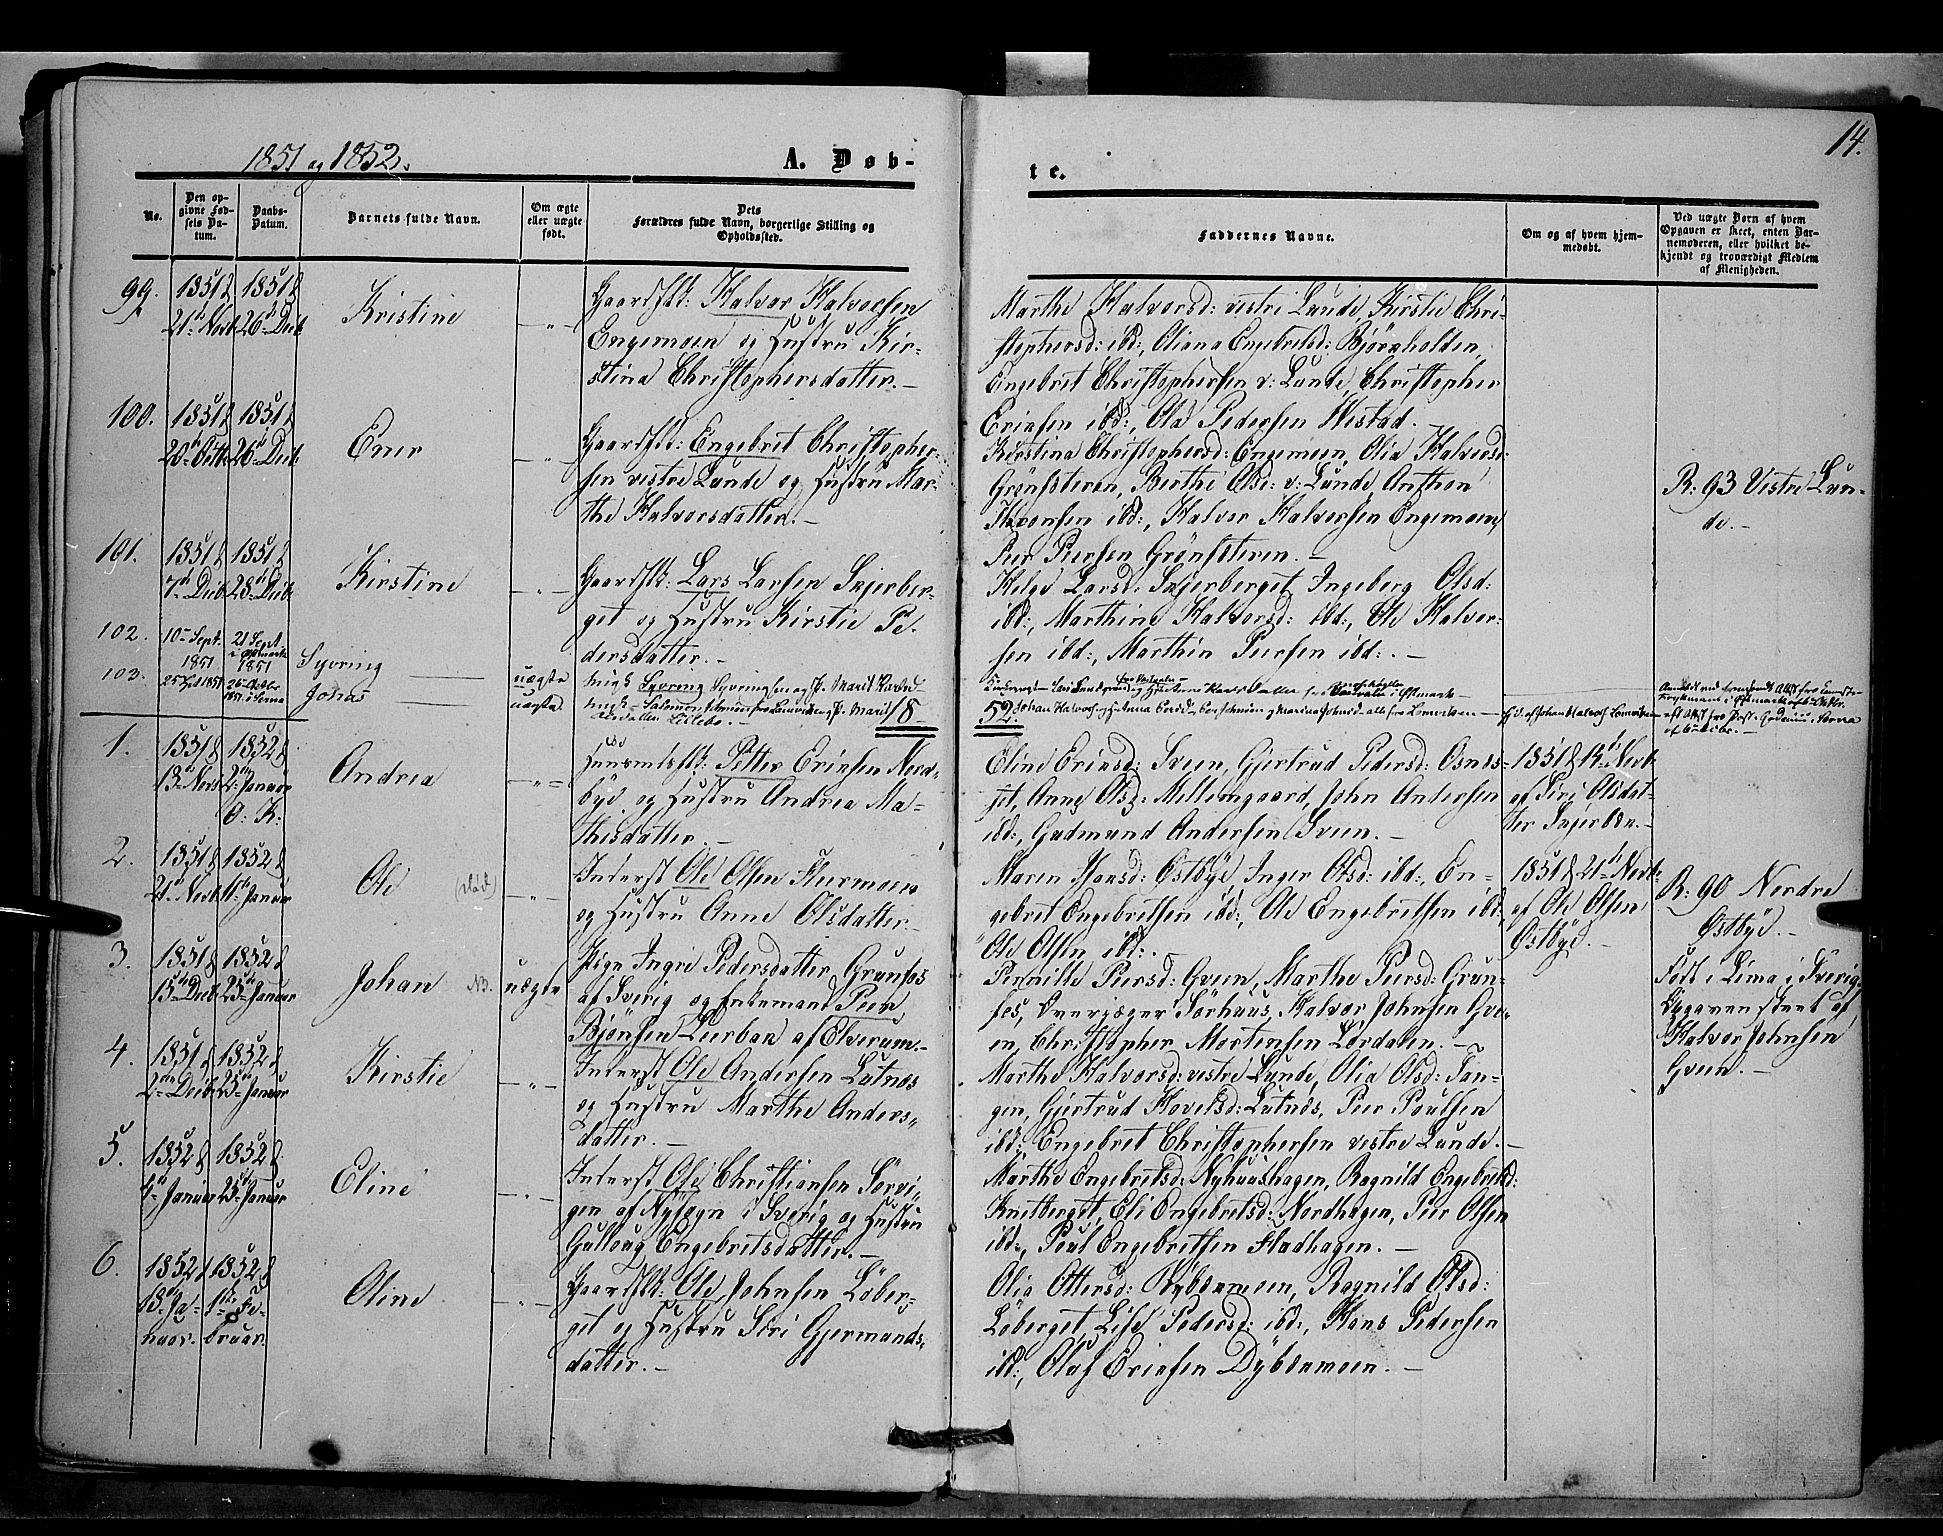 14.
1851 og 1852.
A. Døb-
te.
No.
Den op-
givne Fød-
sels Da-
tum.
Daabs-
Datum.
Barnets fulde Navn.
Om ægte
eller uægte
født.
Dets
Forældres fulde Navn, borgerlige Stilling og
Opholdssted.
Faddernes Navne.
Om og af hvem hjem-
medøbt.
Ved uægte Børn af hvem
Opgaven er skeet, enten Bar-
nemoderen, eller hvilket be-
kjendt og troværdigt Medlem
af Menigheden.
99.
1851
21de Novb
1851
26de Decb
Kristine
-"-
Gaardsbr: Halvor Halvorsen
Engemoen og Hustru Kir-
stina Christophersdatter. -
Marthe Halvorsd: vestre Lunde, Kirstie Chri-
stophersd: ibd:, Oliana Engebretsd: Bjørnholden,
Engebret Christophersen v: Lunde, Christopher
Ericsen ibd:, Ola Pedersen Westad. -
100.
1851
1851
26de Decb
Ener
-"-
Gaardbr: Engebret Christopher-
sen vestre Lunde og Hustru Mar-
the Halvorsdatter. -
Kirstina Christophersd: Engemoen, Olia Halvorsd:
Grønsteren, Berthe Olsd: v: Lunde, Anthon
ibd:, Halvor Halvorsen Engemoen,
Peer Peersen Grønsteren. -
R: 93 Vestre Lun-
de. -
101.
1851
7de Decb
1851
28de Decb
Kirstine
-"-
Gaardbr: Lars Larsen Skjerber-
get og Hustru Kirstie Pe-
dersdatter. -
Helge Larsd: Skjerberget, Ingeberg Olsd:
ibd:, Marthine Halvorsd: ibd:, Ole Halvor-
sen ibd:, Marthin Peersen ibd:. -
102.
10de Sept.
1851
21 Sept
1851
Syvring
uægte
Syvring Syvringsen og P. Marit
103.
25 Sept 1851
26 Octbr
1851
Johas
uægte
Salomon
18
52.
1.
1851
13de Novb
1852
2den Januar
O: K:
Andrea
-"-
Huusmbr: Petter Ericsen Nord-
bye og Hustru Andrea Ma-
thisdatter. -
Eline Ericsd: Sveen, Gjertrud Pedersd: Osnes-
set, Anne Olsd: Mellemgaard, John Andersen
ibd:, Gudmund Andersen Sveen. -
1851 14de Novb
af Siri Olsdat-
ter Skjerbæk. -
2.
1851
21de Novb
1852
11te Januar
Ole
(død)
-"-
Inderst Ole Olsen Flermoen
og Hustru Anne Olsdatter. -
Maren Hansd: Østbye, Inger Olsd: ibd:, En-
gebret Engebretsen ibd:, Ole Engebretsen ibd:,
Ole Olsen ibd:. -
1851 21de Novb
af Ole Olsen
Østbye. -
R: 90 Nordre
Østbye. -
3.
1851
15de Decb
1852
25de Januar
Johan
NB.
uægte
Pige Ingri Pedersdatter Grunfos
af Sverig og Enkemand Peer
Bjønsen Leerban af Elverum. -
Pernille Peersd: Gveen, Marthe Peersd: Grun-
fos, Overjæger Sørhuus, Halvor Johnsen Gve-
en, Christopher Mortensen Lørdalen. -
Født i Lima i Sverig.
Opgaven skeet af
Halvor Johnsen
Gveen. -
4.
1851
2den Decb
1852
25de Januar
Kirstie
-"-
Inderst Ole Andersen Lutnes
og Hustru Marthe Anders-
datter. -
Marthe Halvorsd: vestre Lunde, Olia Olsd: Tan-
gen, Gjertrud Hovelsd: Lutnes, Peer Poulsen
ibd:, Engebret Christophersen vestre Lunde. -
5.
1852
4de Januar
1852
25de Januar
Eline
-"-
Inderst Ole Christiansen Sørvi-
gen af Nysogn i Sverig og Hustru
Gulloug Engebretsdatter. -
Marthe Engebretsd: Nyhuushagen, Ragnild Engebretsd:
Knetberget, Eli Engebretsd: Nordhagen, Peer Olsen
ibd:, Poul Engebretsen Fladhagen. -
6.
1852
13de Ja-
nuar.
1852
1ste Fe-
bruar.
Oline
-"-
Gaardbr: Ole Johnsen Løber-
get og Hustru Siri Gjermunds-
datter. -
Olia Ottersd: Dybdemoen, Ragnild Olsd:
Løberget, Lise Pedersd: ibd:, Hans Pedersen
ibd:, Olaf Ericsen Dybdemoen. -